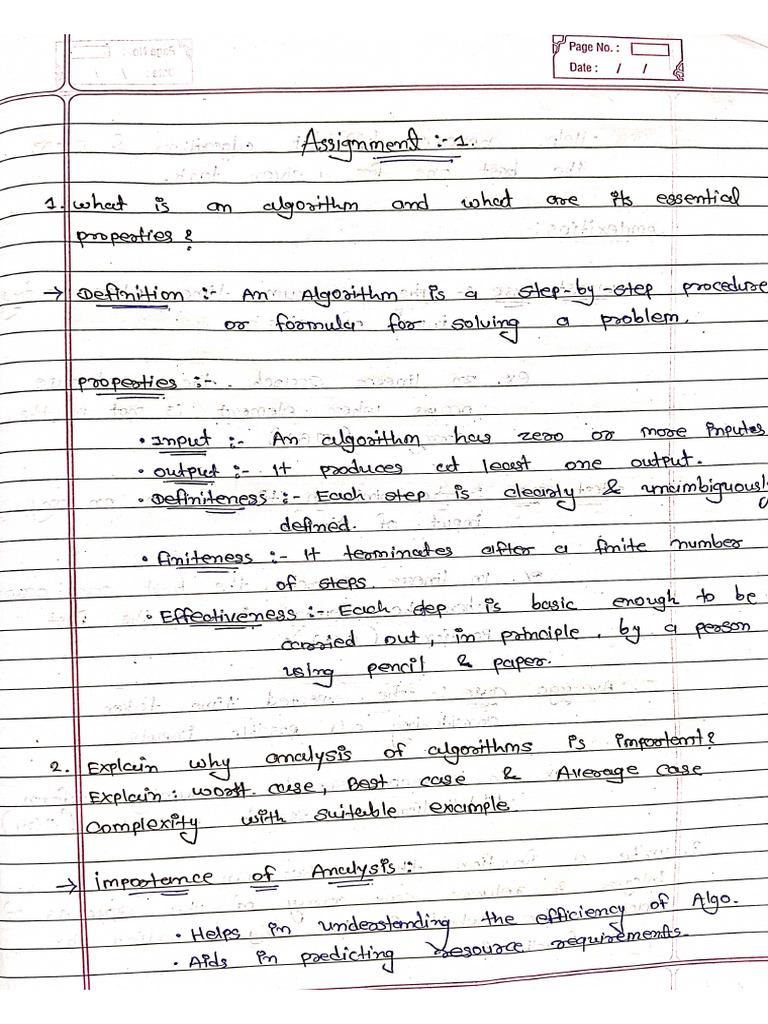 Page No. :
Date : / /
Assignment :- 1.
1. What is an algorithm and what are its essential
properties?
→ Definition :- An Algorithm is a step-by-step procedure
or formula for solving a problem.
properties :-.
• Input :- An algorithm has zero or more Inputes
• Output :- It produces at least one output.
• Definiteness :- Each step is clearly & unambiguously
defined.
• finiteness :- It terminates after a finite number
of steps.
• Effectiveness :- Each step is basic enough to be
carried out, in principle, by a person
using pencil & paper.
2. Explain why analysis of algorithms is important?
Explain: worst case, Best case & Average case
Complexity with suitable example.
→ importance of Analysis :-
• Helps in understanding the efficiency of Algo.
• Aids in predicting resource requirements.